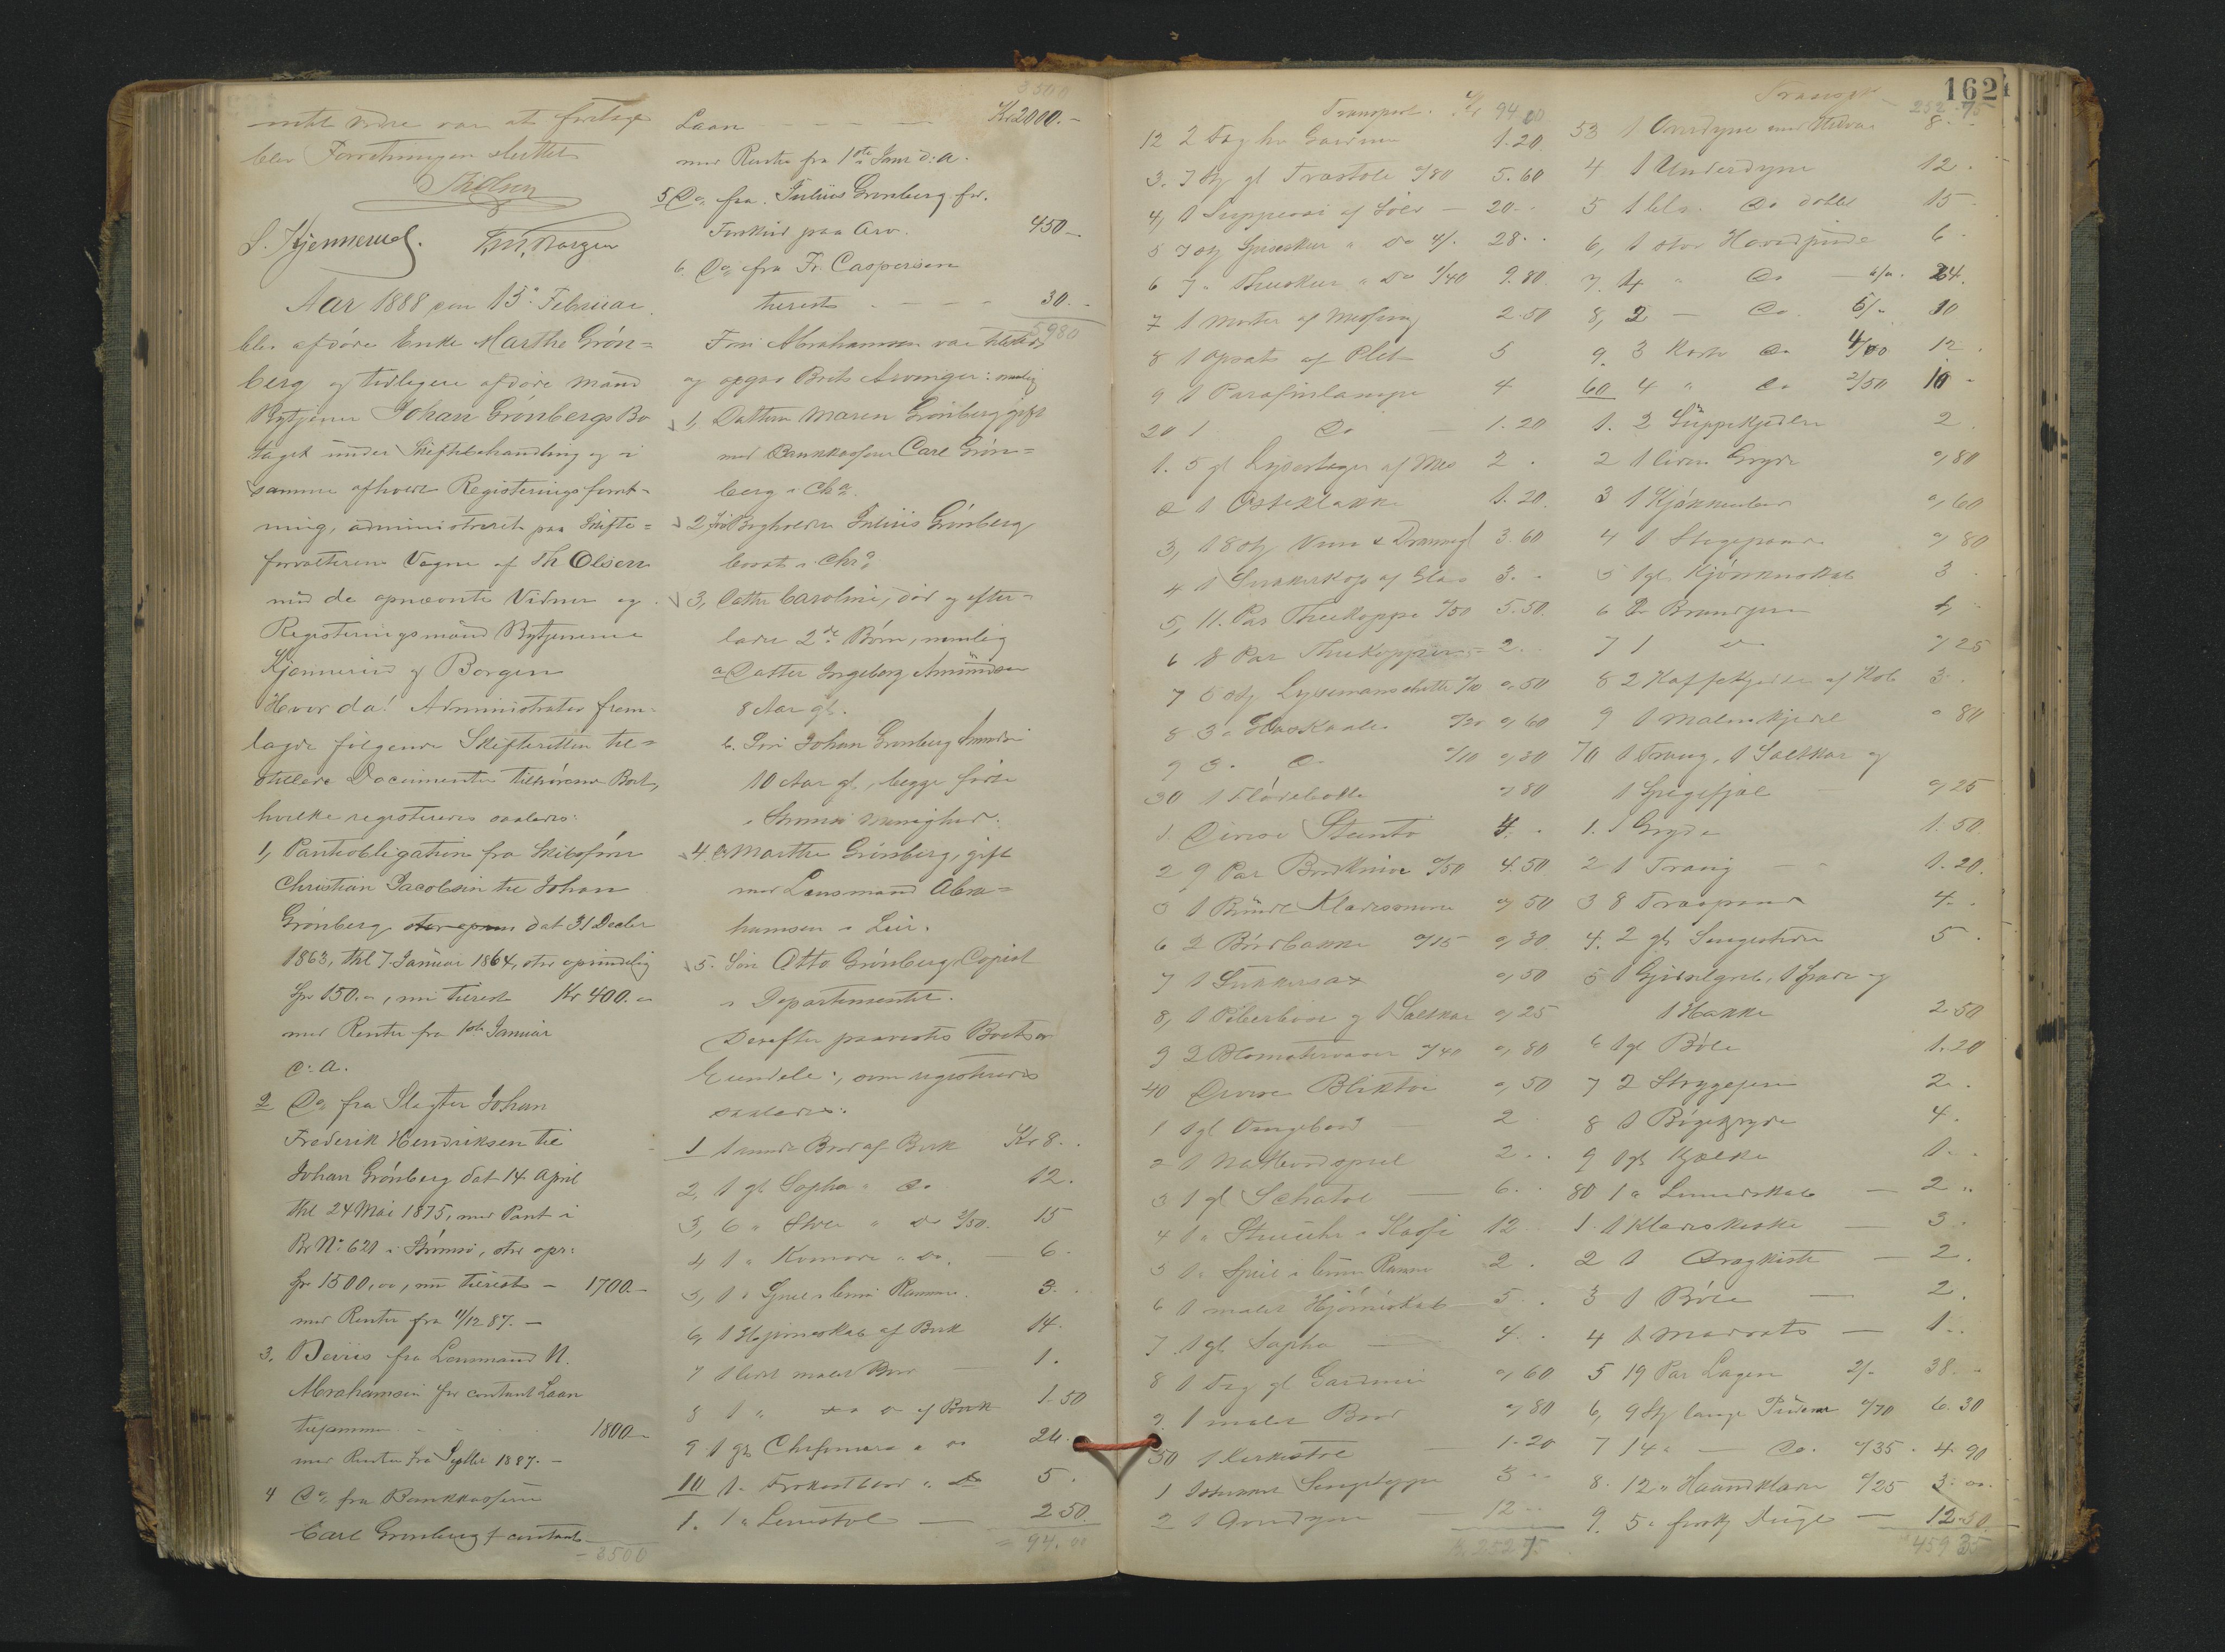 intet videre var at foretage
blev Forretningen sluttet
Th Olsen
S. Kjennerud. Borgen
Aar 1888 den 15de Februar
blev afdøde Enke Marthe Grøn=
berg og tidligere afdøde Mand
Bytjener Johan Grønbergs Bo
taget under Skiftebehandling og i
samme afholdt Registeringsforret-
ning, administreret paa Skifte=
forvalterens Vegne af Th Olsen
med de opnævnte Vidner og
Registeringsmænd Bytjenerne
Kjennerud og Borgen
Hvor da! Administrator frem-
lagde følgende Skifteretten til=
stillede Documenter tilhørende Boet,
hvilke registreredes saaledes:
1, Panteobligation fra Skibsfører
Christian Jacobsen til Johan
Grønberg dat 31 Decbr
1863, thl 7 Januar 1864, stor oprindelig
Spd 150.", nu tilrest Kr 400."
med Renter fra 1ste Januar
d: a.
2 Do fra Slagter Johan
Frederik Hendriksen til
Johan Grønberg dat 14 April
thl 24 Mai 1875, med Pant i
Br No 621 i Strømsø, stor opr:
Spd 1500, nu tilrest - 1700.-
med Renter fra 11/12 87. -
3. Beviis fra Lensmand N.
Abrahamsen for contant Laan
tilsammen 1800-
med Renter fra 1887. -
4 Do fra Bankkasserer
Carl Grønberg f contant
- 3500
3500
Laan - - - - Kr 2000.-
med Renter fra 1ste Janr d: a.
5 Do fra Julius Grønberg for
Forskud paa Arv. 450-
6. Do fra Fr. Caspersen
tilrest - - - 30.-
5980
Fru Abrahamsen var tilstede
og opgav Boets Arvinger: nemlig
1, Datteren Maren Grønberg, gift
med Bankkasserer Carl Grøn=
berg i Cha
2, Bogholder Julius Grønberg
bosat i Chra
3, Datter Caroline, død og efter=
lader 2de Børn, nemlig
a Datter Ingeborg Amundsen
8 Aar gl.
b. Søn Johan Grønberg
10 Aar gl, begge
i Strømsø Menighed.
4. Marthe Grønberg, gift
med Lensmand Abra=
hamsen i Lier.
5. Søn Otto Grønberg, Copist
i Departementet.
Derefter paavistes Boets
Eiendele, som registreredes
saaledes:
1 1 rundt Bord af Birk Kr 8.
2, 1 gl Sopha " Do 12.
3, 6 " Stole " Do 2/50. 15
4, 1 " Komode " Do. - 6.
5, 1 " Speil i Ramme. 3.
6, 1 Hjørneskab af Birk 14.
7 1 lidet malet Bord - 1.
8 1 " do af Birk 1.50
9 1 gl Chifoniere " do 24.
10 1. Frokostbord " Do 5.
1. 1 " Lænestol - 2 50.
= 94.00
Transport. Kr 94 00
12 2 Fag hv Gardiner 1.20.
3. 7 Stk gl Træstole "/80 5.60
4, 1 Suppeøse af Sølv - 20..
5 7 Stk Spiseskeer " Do 4/. 28..
6 7 " Theskeer " Do 1/40 9.80.
7 1 Morter af Messing 2.50
8 1 Opsats af Plet 5
9 1 Parafinlampe 4
20 1 Do - 1.20
1. 5 gl Lysestager af Mes 2.
2 1 Osteklokke 1.20.
3, 18 Stk Viin & Dramgl 3.60
4 1 Sukkerkop af Glas 3..
5, 11. Par Thekopper "/50 5.50.
6 8 Par Thekopper = 2..
7 5 Stk Lysemanschetter "/10 ",50
8 3 " Glasskaale "/20 ",60
9 3 " Do "/10 ",30
30 1 Flødebolle ",80
1. Diverse Stentøi 4.
2 9 Par Bordknive "/50 4.50
3 1 Bundt Klædesnore ",50
6 2 Bordbakker "/15 ",30
7 1 Sukkersax ",50
8, 1 Peberbøsse og 1 Saltkar ",25
9 2 Blomstervaser "/40 ",80
40 Diverse Bliktøi ",50
1 1 gl Vingebord - 2
2 1 Natbordspeil 2..
3 1 gl Schatol - 6..
4 1 " Stueuhr i Kasse 12
5 1 " Speil i Ramme 2.
6 1 malet Hjørneskab 5..
7 1 gl Sopha - 4.
8 1 Fag gl Gardiner ",60
9. 1 malet Bord ",80
50 1 Kirkestol 1-20
1 Sengetæppe 3..
2 1 Overdyne - 12..
Kr 252 75
1624
Transport 252.75
53 1 Overdyne med 8..
4 1 Underdyne 12.
5 1 do dobbl 15.
6, 1 stor Hovedpude 6.
7, 4 " Do - 6/". 24.
8, 2 - Do. 5/" 10
9. 3 Do 4/00 12.
60 4 " Do 2/50 10.
1. 2 Suppekjedler 2.
2 1 liden Gryde ",80
3 1 Kjøkken ",60
4 1 Stegepande ",80
5 1 gl. Kjøkkenskab 3.
6 2 4
7 1 do ",25
8 2 Kaffekjedler af Kob 3.
9 1 Malmkjedel " 80
70 1 Traug, 1 Saltkar og
1 Spegefjæl - ",25
1. 1 Gryde 1.50.
2 1 Traug - - 1.20.
3 8 4..
4. 2 gl. Sengesteder 5.
5 1 Gjødselgreb, 1 Spade og
1 Hakke 2 50
6 1 gl Bøle 1.20
7 2 Strygejern 2..
8 1 Bøgegryde 4.
9 1 gl Kjælke 1..
80 1 " - 2..
1. 1 Klædeskiste - 3.
2 1 Dragkiste - 2.
3 1 Bøle - 2.
4 1 Madrats - 1..
5 19 Par Lagen 2/- 38.-
6, 9 Stk lange "/70 6.30
7 14 " - Do. "/35. 4.90
8. 12 " Haandklæder "/25 3.00.
9. 5 " Duge - 12.50.
459 35